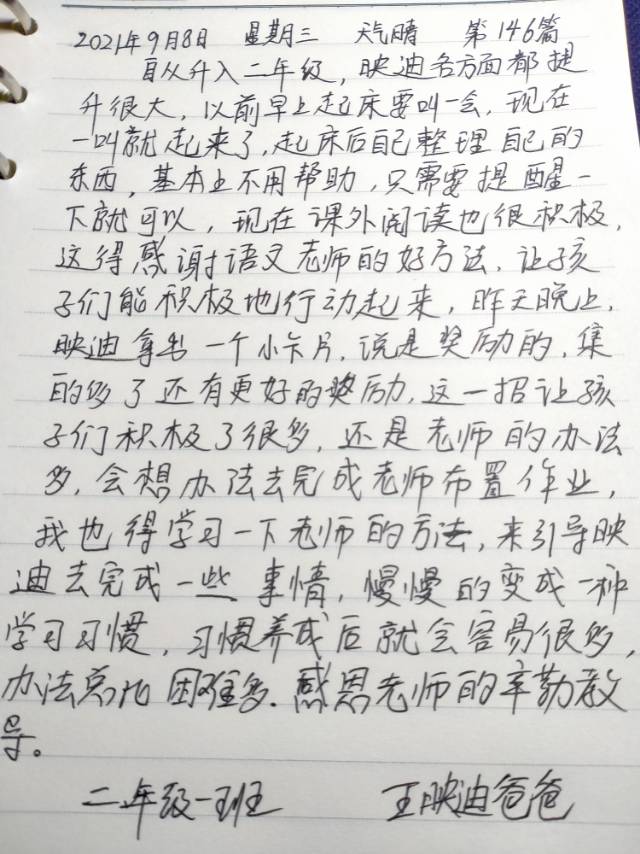 2021年9月8日 星期三 天气晴 第146篇
自从升入二年级，映迪各方面都提
升很大，以前早上起床要叫一会，现在
一叫就起来了，起床后自己整理自己的
东西，基本上不用帮助，只需要提醒一
下就可以，现在课外阅读也很积极，
这得感谢语文老师的好方法，让孩
子们能积极地行动起来，昨天晚上，
映迪拿出一个小卡片，说是奖励的，集
的多了还有更好的奖励，这一招让孩
子们积极了很多，还是老师的办法
多，会想办法去完成老师布置作业，
我也得学习一下老师的方法，来引导映
迪去完成一些事情，慢慢的变成一种
学习习惯，习惯养成后就会容易很多，
办法总比困难多．感恩老师的辛勤教
导。
二年级一班 王映迪爸爸